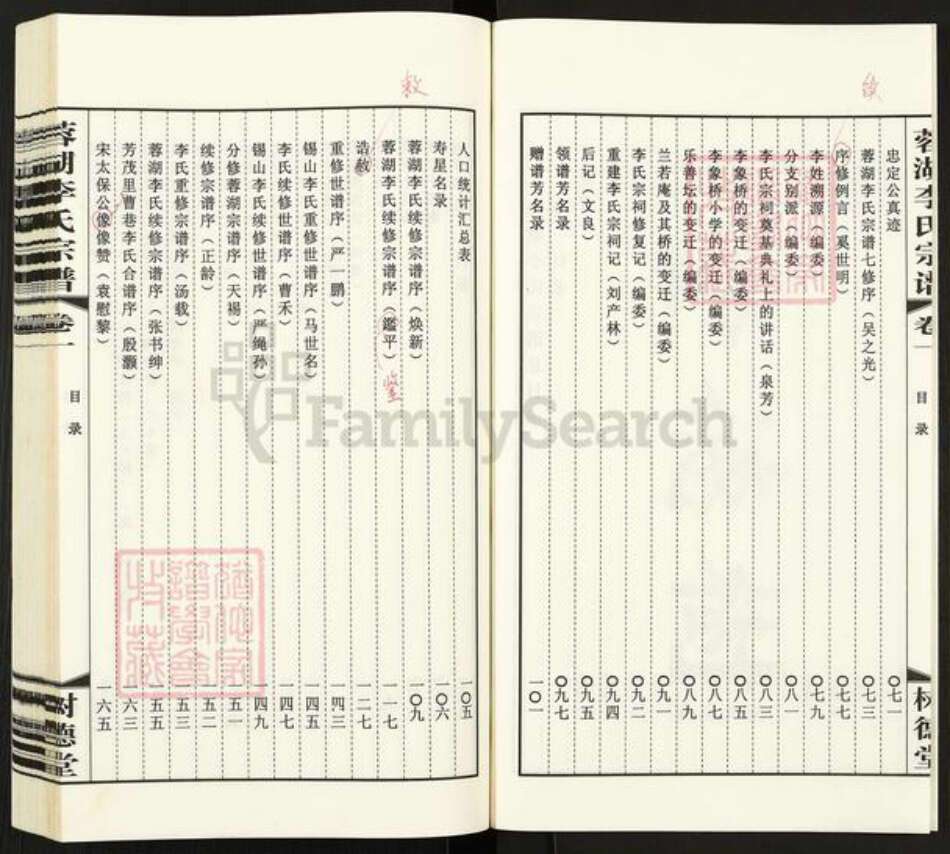 蓉湖李氏宗谱 卷一
目录
树德堂
忠定公真迹 ○七一
蓉湖李氏宗谱七修序（吴之光） ○七三
序修例言（奚世明） ○七七
李姓溯源（编委） ○七九
分支别派（编委） ○八一
李氏宗祠奠基典礼上的讲话（泉芳） ○八三
李象桥的变迁（编委） ○八五
李象桥小学的变迁（编委） ○八七
乐善坛的变迁（编委） ○八九
兰若庵及其桥的变迁（编委） ○九一
李氏宗祠修复记（编委） ○九二
重建李氏宗祠记（刘产林） ○九四
后记（文良） ○九五
领谱芳名录 ○九七
赠谱芳名录 一○一
人口统计汇总表 一○五
寿星名录 一○六
蓉湖李氏续修宗谱序（焕新） 一○九
蓉湖李氏续修宗谱序（鑑平） 一一七
鉴
诰敕 一二七
敕
重修世谱序（严一鹏） 一四三
锡山李氏重修世谱序（马世名） 一四五
李氏续修世谱序（曹禾） 一四七
锡山李氏续修世谱序（严绳孙） 一四九
分修蓉湖宗谱序（天裼） 一五一
续修宗谱序（正龄） 一五二
李氏重修宗谱序（汤载） 一五三
蓉湖李氏续修宗谱序（张书绅） 一五五
芳茂里曹巷李氏合谱序（殷灏） 一六三
宋太保公像像赞（袁慰黎） 一六五
蓉湖李氏宗谱 卷一
目录
树德堂
FamilySearch